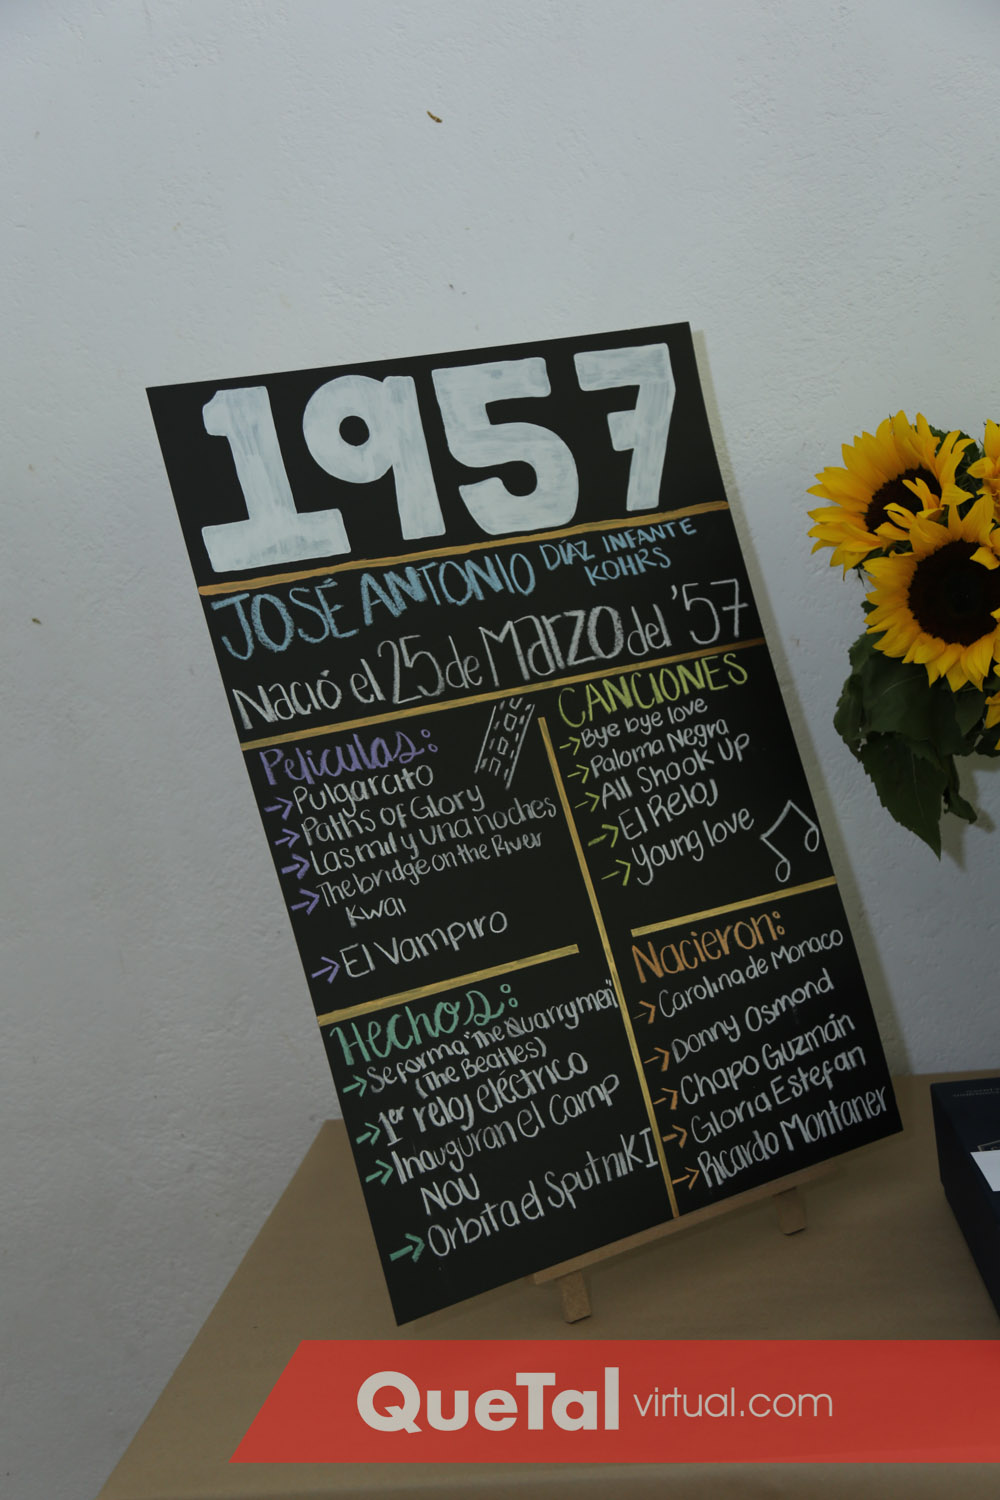 1957
JOSÉ ANTONIO DÍAZ INFANTE
KOHRS
Nació el 25 de Marzo del '57
Películas:
→ Pulgarcito
→ Paths of Glory
→ Las mil y una noches
→ The bridge on the River
Kwai
→ El Vampiro
CANCIONES
→ Bye bye love
→ Paloma Negra
→ All Shook Up
→ El Reloj
→ Young love
Hechos:
→ Se forma "The Quarrymen"
(The Beatles)
→ 1er reloj eléctrico
→ Inauguran el Camp
NOU
→ Orbita el Sputnik I
Nacieron:
→ Carolina de Monaco
→ Donny Osmond
→ Chapo Guzmán
→ Gloria Estefan
→ Ricardo Montaner
QueTal virtual.com